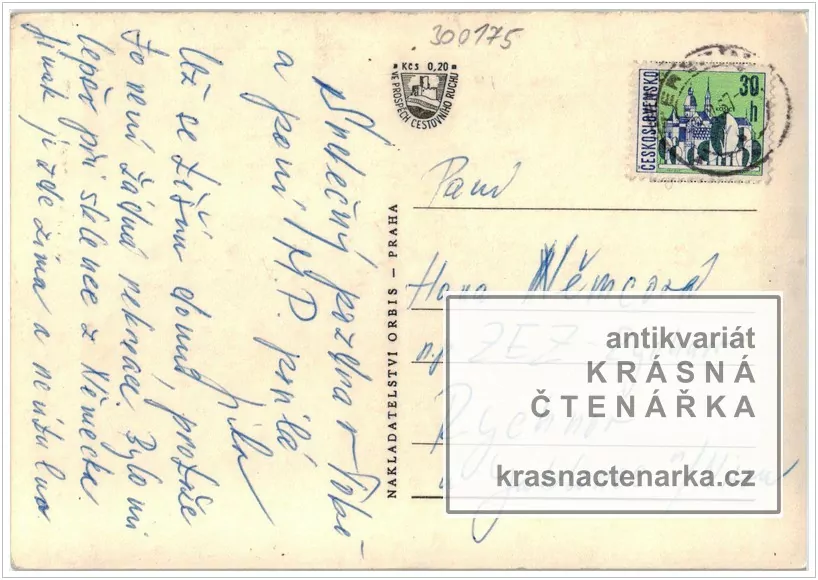 300175
Kčs 0,20
VE PROSPĚCH CESTOVNÍHO RUCHU
ČESKOSLOVENSKO
30 h
Srdečný pozdrav Tobě
a paní M.P. posílá
Už se těším domů, protože
to není žádná rekreace. Bylo mi
lépe při sklence z Německa
jinak je zde zima a neútulno.
NAKLADATELSTVÍ ORBIS – PRAHA
Paní
Hana Němcová
n.p. ZEZ
Rychnov
antikvariát
KRÁSNÁ
ČTENÁŘKA
krasnactenarka.cz